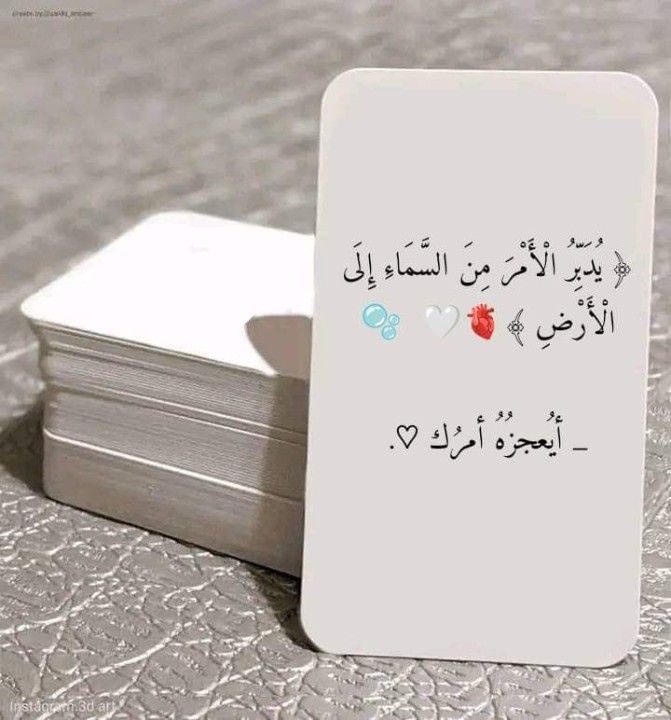 ﴿ يُدَبِّرُ الْأَمْرَ مِنَ السَّمَاءِ إِلَى
الْأَرْضِ ﴾ 🫀🤍 🫧
_ أيُعجزُهُ أمرُك ♡.
Instagram.3d art